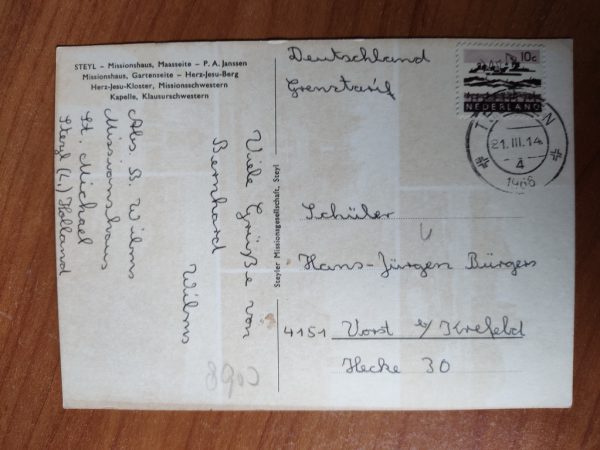 STEYL – Missionshaus, Maasseite – P. A. Janssen
Missionshaus, Gartenseite – Herz-Jesu-Berg
Herz-Jesu-Kloster, Missionsschwestern
Kapelle, Klausurschwestern
Viele Grüße von
Bernhard
Wilms
Abs. B. Wilms
Missionshaus
St. Michael
Steyl (L.) Holland
Steyler Missionsgesellschaft, Steyl
Deutschland
Grenztarif
10c
NEDERLAND
21.III.14
4
1966
Schüler
Hans-Jürgen Bürgers
4151 Vorst b/ Krefeld
Hecke 30